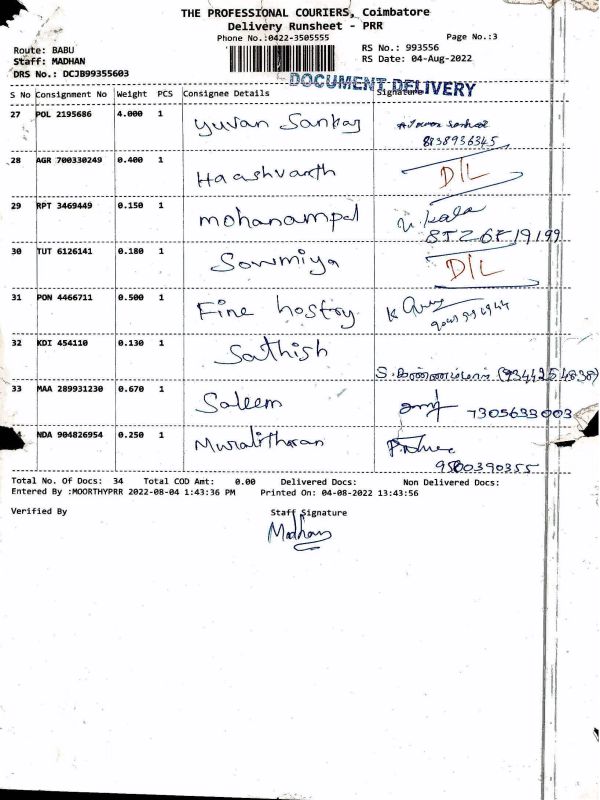 THE PROFESSIONAL COURIERS, Coimbatore
Delivery Runsheet - PRR
Phone No.:0422-3505555
Page No.:3
Route: BABU
RS No.: 993556
Staff: MADHAN
RS Date: 04-Aug-2022
DRS No.: DCJB99355603
DOCUMENT DELIVERY
S No Consignment No Weight PCS Consignee Details Signature
27 POL 2195686 4.000 1 Yuvan Sankar
8838936345
28 AGR 700330249 0.400 1 Haashvanth D/L
29 RPT 3469449 0.150 1 mohanampal
30 TUT 6126141 0.180 1 Sowmiya D/L
31 PON 4466711 0.500 1 Fine hostry
32 KDI 454110 0.130 1 Sathish
33 MAA 289931230 0.670 1 Saleem 7305633003
NDA 904826954 0.250 1 Muralitharan
9500390355
Total No. Of Docs: 34 Total COD Amt: 0.00 Delivered Docs: Non Delivered Docs:
Entered By :MOORTHYPRR 2022-08-04 1:43:36 PM Printed On: 04-08-2022 13:43:56
Verified By Staff Signature
Madhan